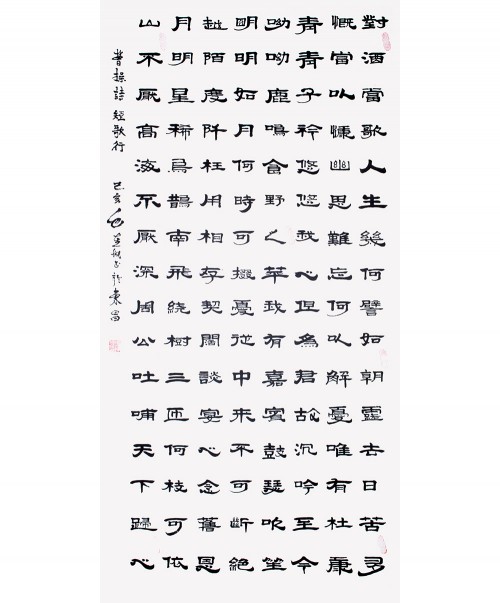 對酒當歌人生幾何譬如朝露去日苦多
慨當以慷幽思難忘何以解憂唯有杜康
青青子衿悠悠我心但為君故沉吟至今
呦呦鹿鳴食野之苹我有嘉賓鼓瑟吹笙
明明如月何時可掇憂從中來不可斷絕
越陌度阡枉用相存契闊談宴心念舊恩
月明星稀烏鵲南飛繞樹三匝何枝可依
山不厭高海不厭深周公吐哺天下歸心
曹操詩 短歌行 己亥 於東昌